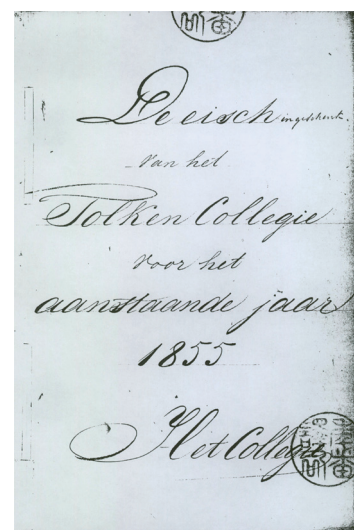 De eisch
van het
Tolken Collegie
voor het
aanstaande jaar
1855
Het Collegie